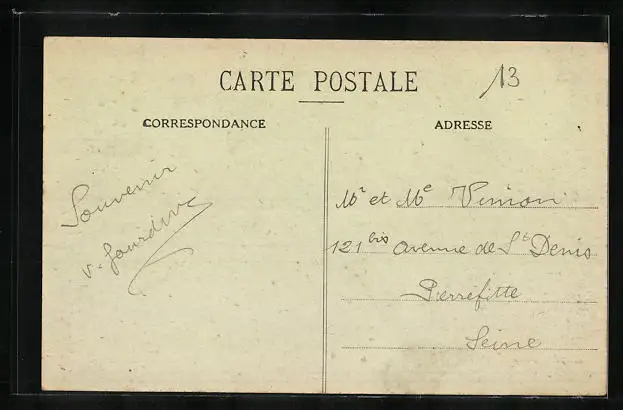 CARTE POSTALE
13
CORRESPONDANCE
ADRESSE
Souvenir
V. Jourdin
Mr et Me Vinion
121 bis avenue de St Denis
Pierrefitte
Seine